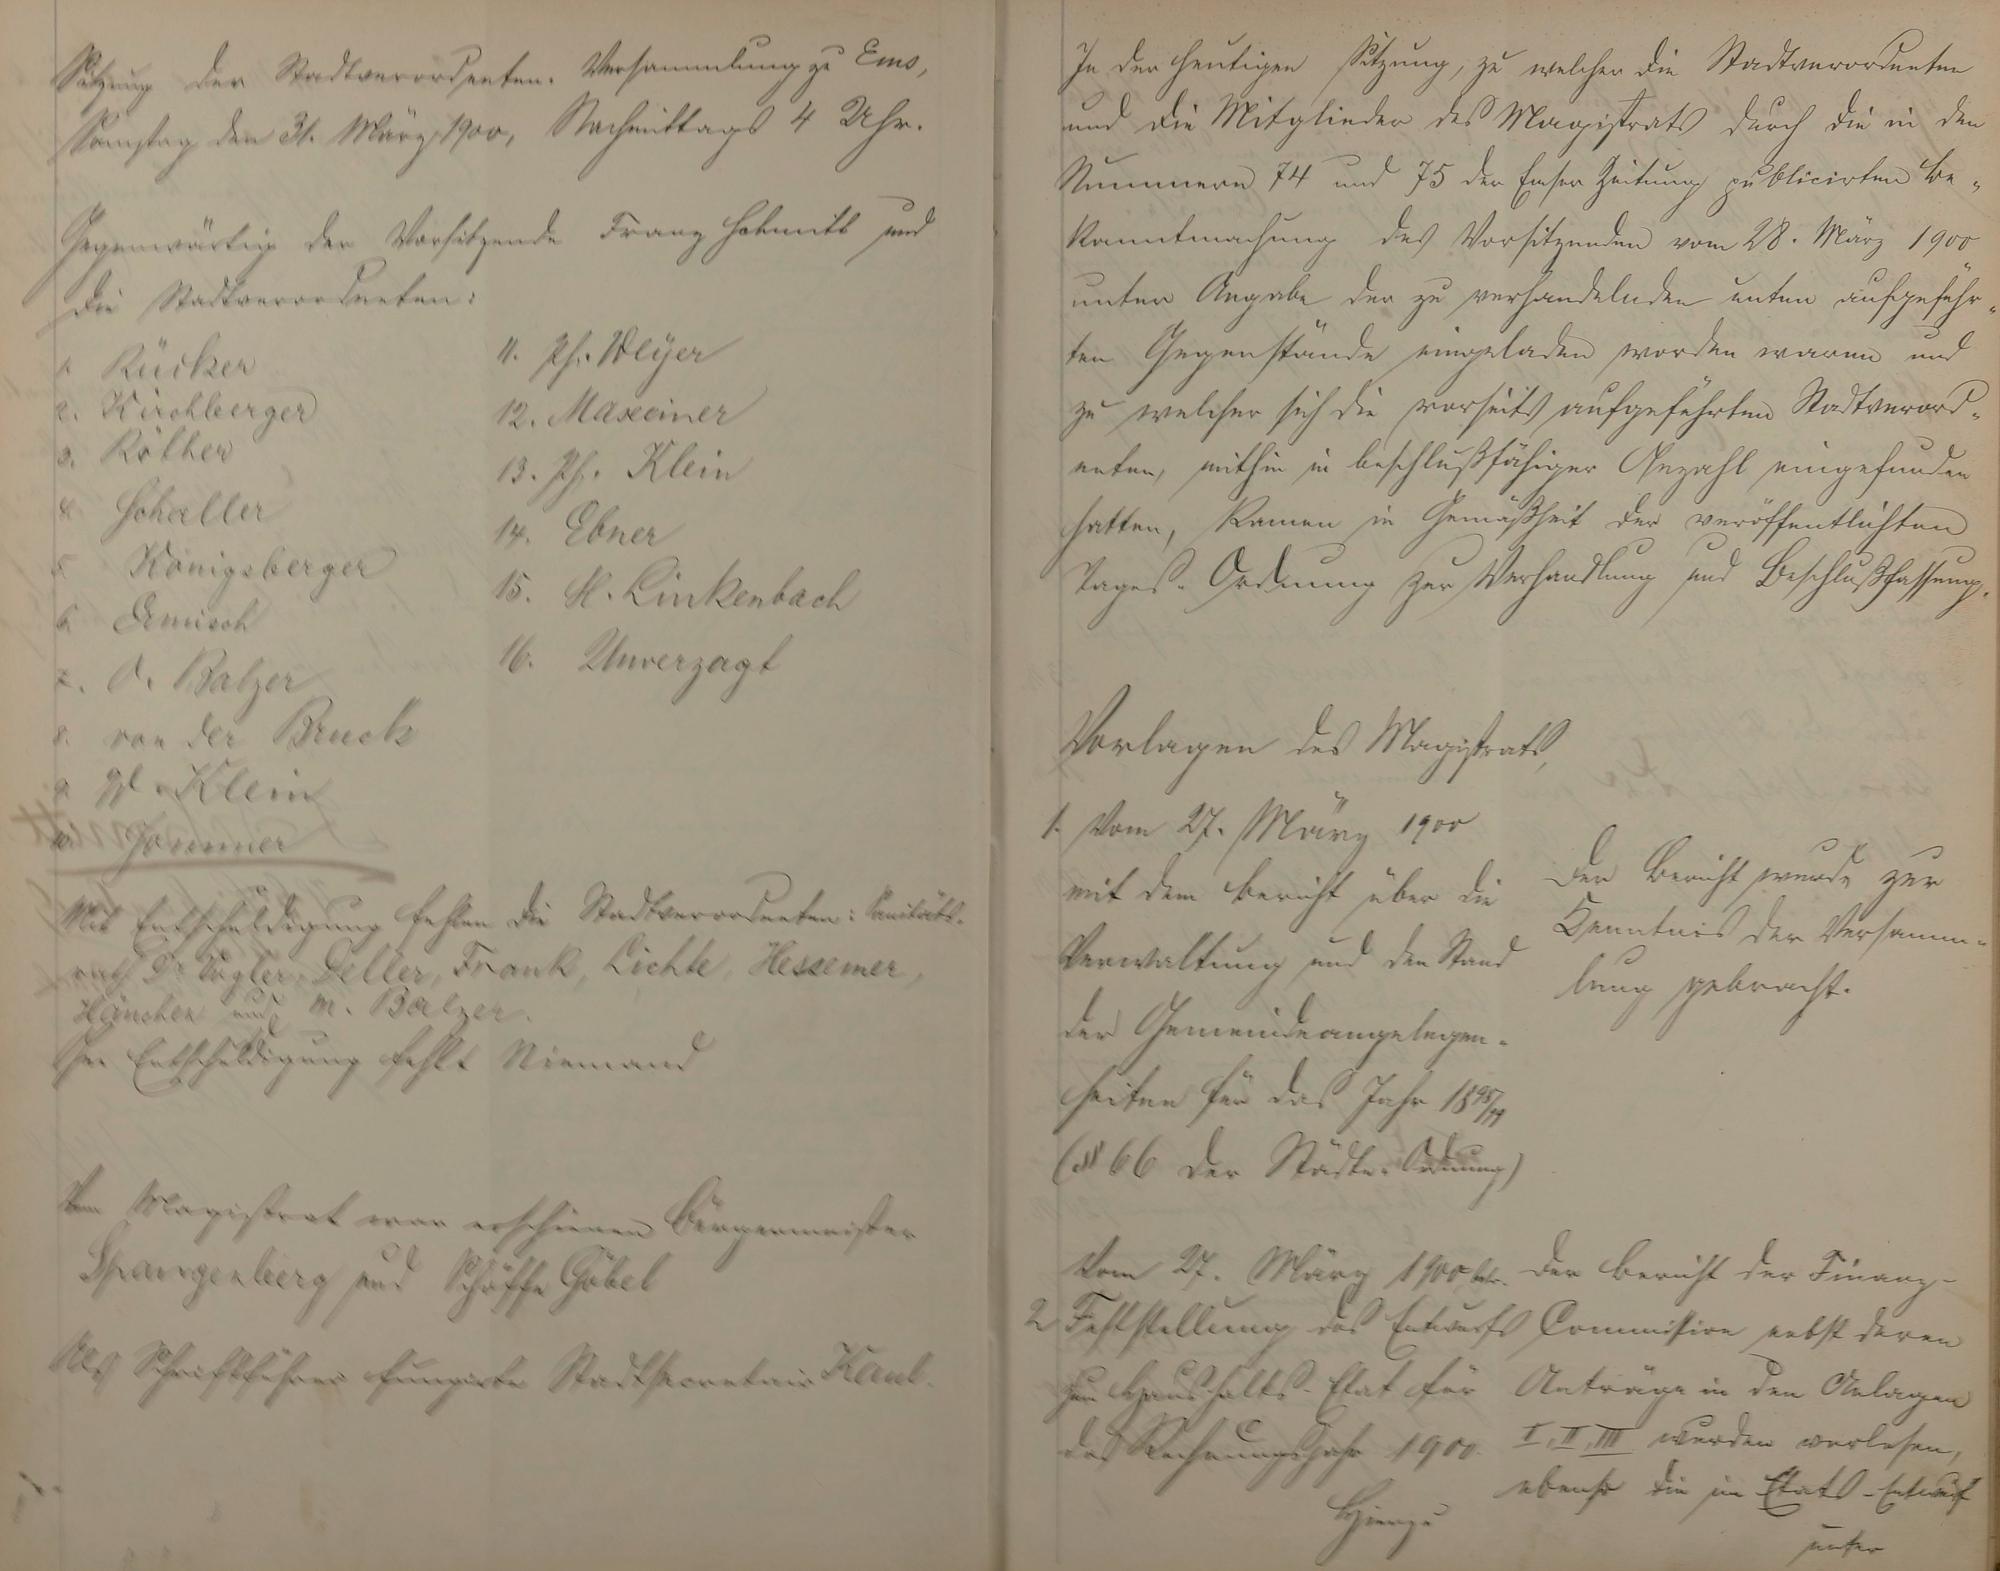 Sitzung der Stadtverordneten-Versammlung zu Ems,
Samstag den 31. März 1900, Nachmittags 4 Uhr.
Gegenwärtig der Vorsitzende Franz Schmitt und
die Stadtverordneten:
1. Rücker
2. Kirchberger
3. Röther
4. Schaller
5. Königsberger
6. Ermisch
7. A. Balzer
8. von der Bruck
9. W. Klein
10. Sommer
11. Ph. Weyer
12. Maxeiner
13. Ph. Klein
14. Ebner
15. H. Linkenbach
16. Unverzagt
Mit Entschuldigung fehlen die Stadtverordneten: Sanitäts-
rath Dr. Vogler, Deller, Frank, Lichte, Hessemer,
Häncher und M. Balzer.
Ohne Entschuldigung fehlt Niemand
Vom Magistrat war erschienen Bürgermeister
Spangenberg und Schöffe Göbel
Als Schriftführer fungirte Stadtsecretair Kaul.
In der heutigen Sitzung, zu welcher die Stadtverordneten
und die Mitglieder des Magistrats durch die in den
Nummern 74 und 75 der Emser Zeitung publicirten Be-
kanntmachung des Vorsitzenden vom 28. März 1900
unter Angabe der zu verhandelnden unten aufgeführ-
ten Gegenstände eingeladen worden waren und
zu welcher sich die vorseits aufgeführten Stadtverord-
neten, mithin in beschlußfähiger Anzahl eingefunden
hatten, kamen in Gemäßheit der veröffentlichten
Tages-Ordnung zur Verhandlung und Beschlußfassung.
Vorlagen des Magistrats,
1. Vom 27. März 1900
mit dem Bericht über die
Verwaltung und den Stand
der Gemeindeangelegen-
heiten für das Jahr 1898/99
(§ 66 der Städte-Ordnung)
Der Bericht wurde zur
Kenntnis der Versamm-
lung gebracht.
Vom 27. März 1900 betr.
2 Feststellung des Entwurfs
zum Haushalts-Etat für
das Rechnungsjahr 1900.
Hierzu
Der Bericht der Finanz-
Commission nebst deren
Anträge in den Anlagen
I, II, III wurden verlesen,
ebenso die im Etats-Entwurf
unter